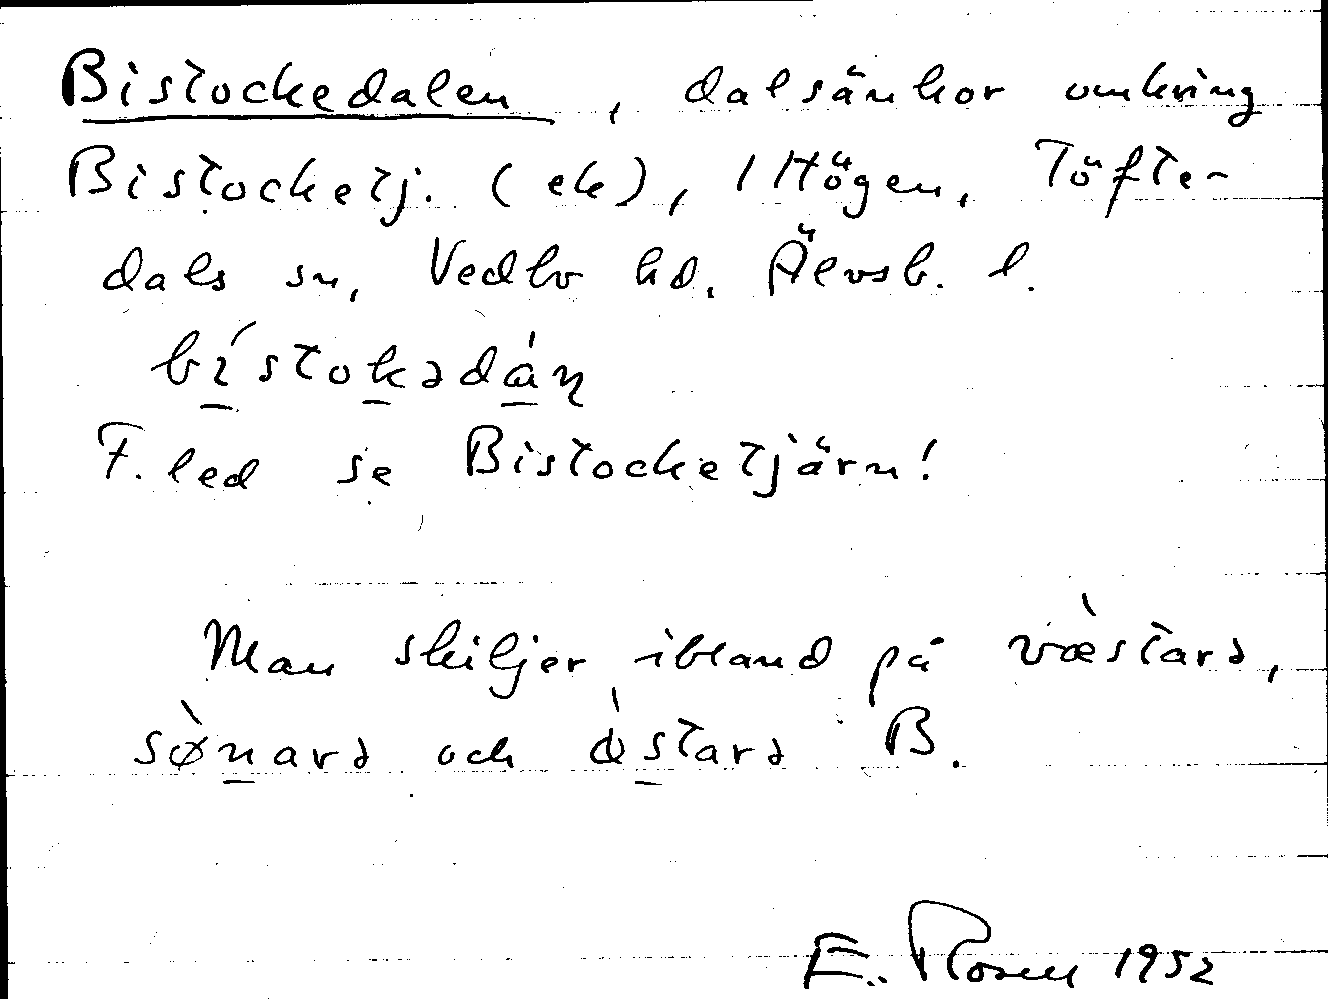 Bistockedalen, dalsänkor omkring
Bistocketj. (ek), 1 Högen, Töfte-
dals sn, Vedbo hd. Älvsb. l.
bístokədáɳ
F. led se Bistocketjärn!
Man skiljer ibland på væ̀starə,
sø̀narə och ø̀starə B.
E. Rosen 1952